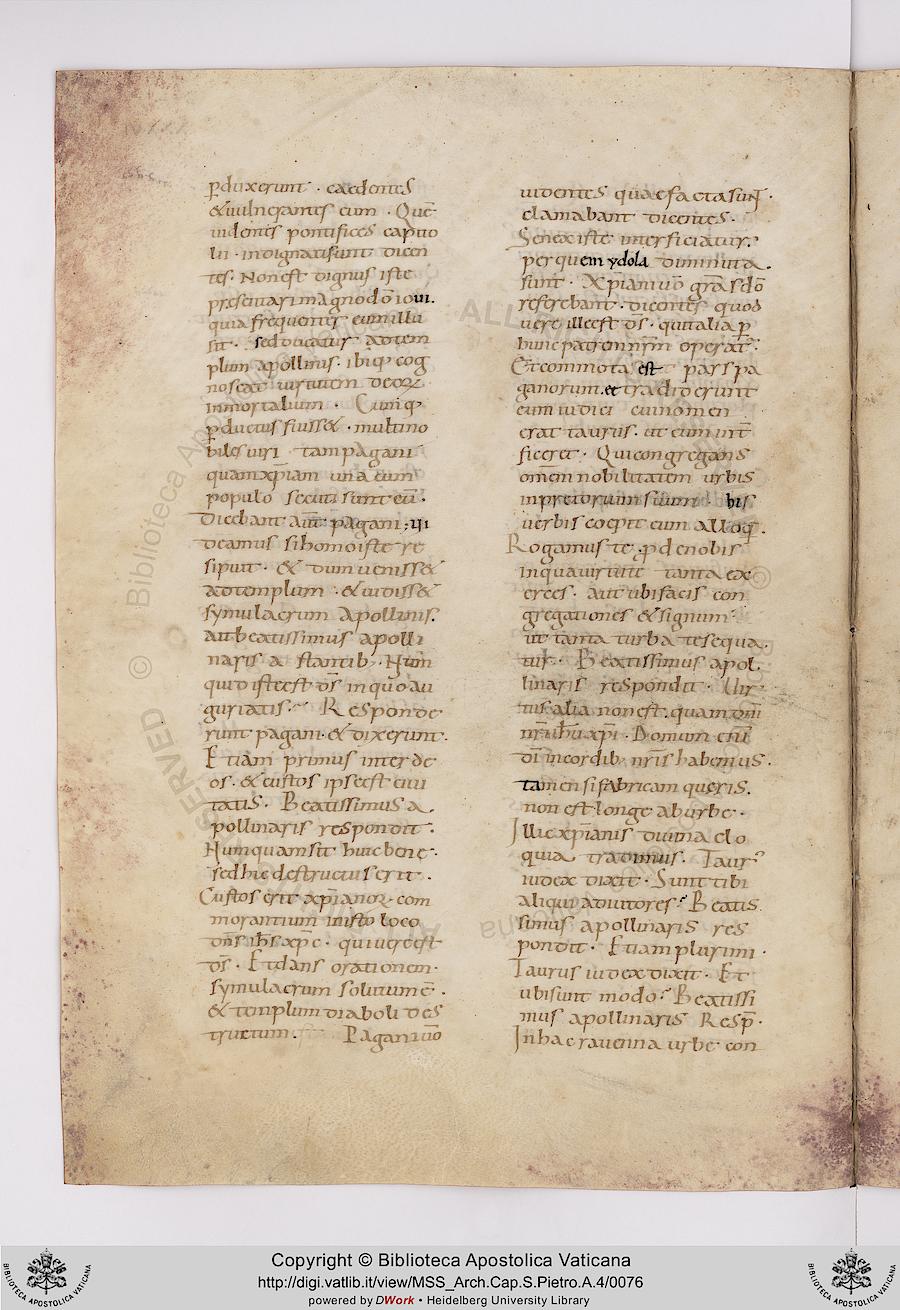 ꝑduxerunt · caedentes
&uulnerantes eum · Quē
uidentes pontifices capito
lii · indignatisunt dicen
tes. Nonest dignus iste
presentari magnodō ioui.
quia frequenter eumillu
sit · sed ducatur adtem
plum apollinis. ibiq; cog
noscat uirtutem deoꝝ
inmortalium · Cumq;
ꝑductus fuiss& · multino
biles uiri tampagani
quamxp̄iam una cum
populo secuti sunt eū.
Dicebant aūt pagani;
deamus sihomoiste re
sipuit · & dum uenisse&
adtemplum · & uidiss&
symulacrum Apollinis.
ait beatissimus apolli
naris a stantib; · Num
quid isteest dī inquo au
guriatis. Responde
runt pagani · & dixerunt.
Etiam primus inter de
os · & custos ipseest ciui
tatis. Beatissimus a
pollinaris respondit.
Nunquamsit huic bene.
sedhic destructus erit.
Custos erit xp̄ianoꝝ com
morantium inisto loco
dn̄s ih̄s xp̄c · quiuereest
dī · Etdans orationem.
symulacrum solutumē.
& templum diaboli des
tructum. Paganiuō
uidentes quaefactasunt.
clamabant dicentes.
Senexiste interficiatur.
perquem ydola diminuta
sunt · Xp̄ianiuō grāsdō
referebant · dicentes quod
uere illeest dī · quitaliaꝑ
huncpatremnr̄m operat̄.
Etcommota est pars pa
ganorum. et tradiderunt
eum iudici cuinomen
erat taurus. ut eum int̄
ficeret. Quicongregans
omēm nobilitatem urbis
inpretorium suum · his
uerbis coepit eum alloq̄.
Rogamus te ·ꝑdenobis
inquauirtute tanta ex
erces. aut ubifacis con
gregationes & signum
ut tanta turba tesequa
tur. Beatissimus apol
linaris respondit · Uir
tus alia nonest. quam dn̄i
nr̄i ih̄u xp̄i · Domum enī
dī incordib; nr̄is habemus.
tamen sifabricam queris.
non est longe aburbe.
Illic xp̄ianis diuina elo
quia tradimus. Taur⁹
iudex dixit · Sunt tibi
aliqui adiutores? Beatis
simus apollinaris res
pondit · Etiam plurimi.
Taurus iudexdixit · Et
ubisunt modo? Beatissi
mus apollinaris Resp̄.
Inhac rauenna urbe con
Copyright © Biblioteca Apostolica Vaticana
http://digi.vatlib.it/view/MSS_Arch.Cap.S.Pietro.A.4/0076
powered by DWork • Heidelberg University Library